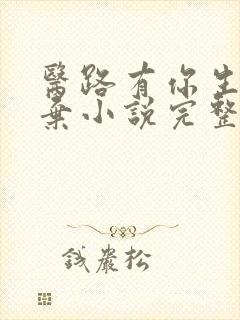 醫路有你生
棄小說完整
錢巖松